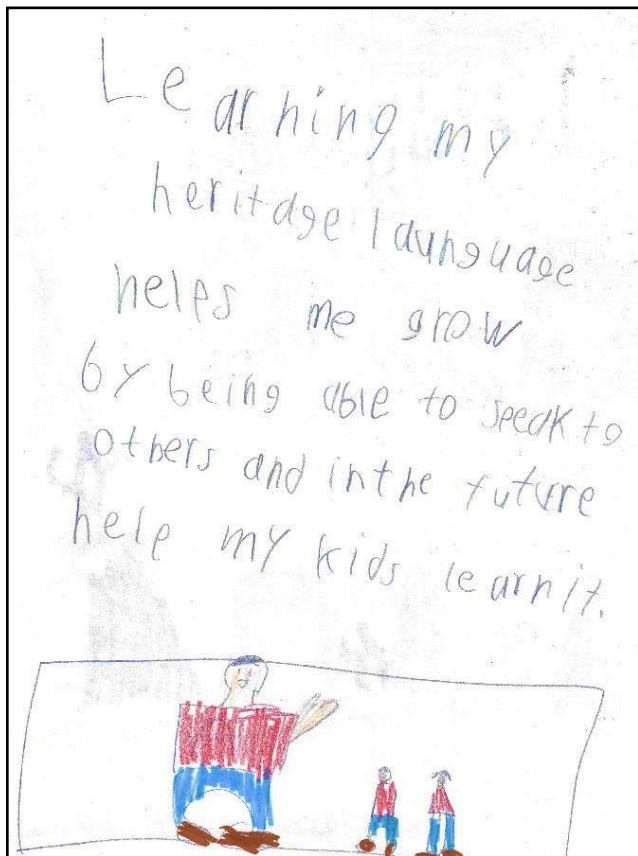 Learning my
heritage launguage
helps me grow
by being able to speak to
others and in the future
help my kids learn it.